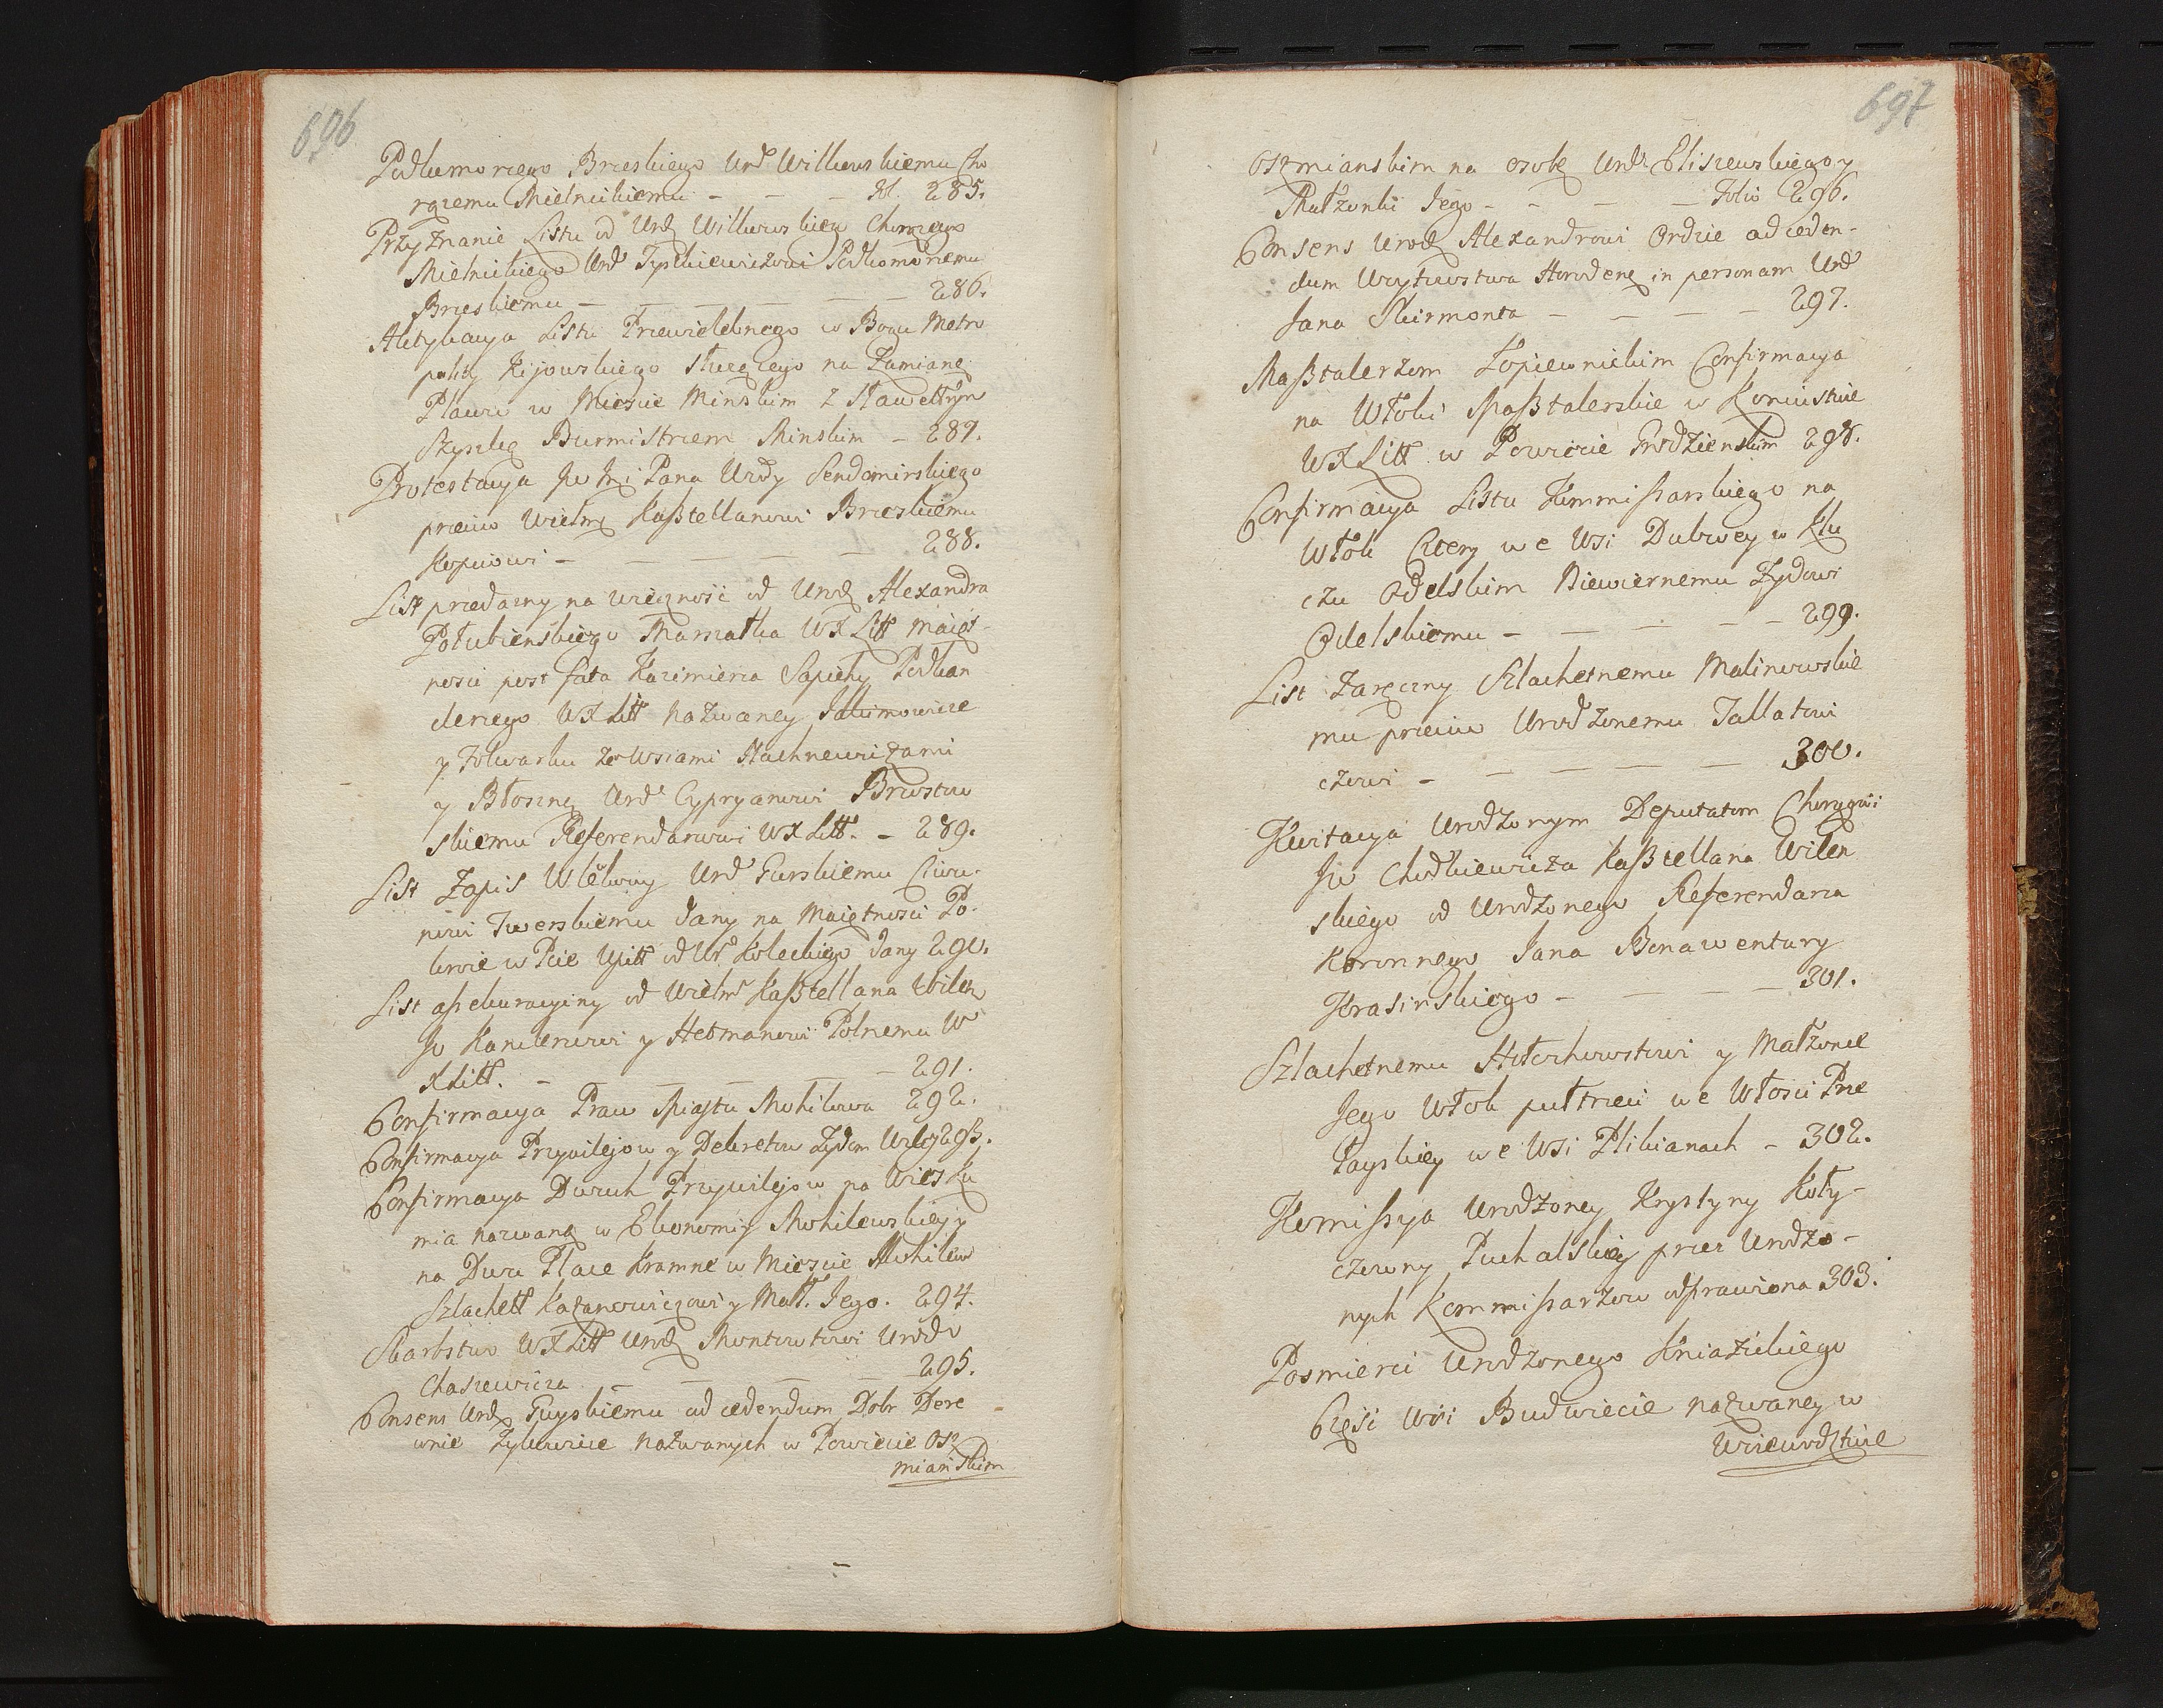 696
Podkomorzego Brzeskiego Urd Wilkowskiemu Cho
rążemu Mielnickiemu - - - fol. 285.
Przyznanie Listu od Urdz Wilkowskiego Chorążego
Mielnickiego Urd Tyszkiewiczowi Podkomorzemu
Brzeskiemu - - - - - 286.
Aktykacya Listu Przewielebnego w Bogu Metro
polity Kijowskiego służącego na Zamianę
Placu w Miescie Minskim z Sławettnym
Burmistrzem Minskim - 287.
Protestacya Jw Pana Wdy Sendomirskiego
przeciw Wielmż Kasztellanowi Brzeskiemu
Kopciowi - - - - 288.
List przedazny na wieczność od Urodz Alexandra
Połubienskiego Marszałka WXLitt maięt-
nosci post fata Kazimierza Sapiehy Podkan
clerzego WXLitt nazwaney
y Folwarku ze Wsiami Stachnewiczami
y Urd Cypryanowi Brzostow
skiemu Referendarzowi WXLitt. - 289.
List Zapis Urd Gurskiemu Ciwu-
nowi Twerskiemu dany na Maiętnosci Po-
w Pcie Upitt od Ur. Koleckiego dany 290.
List assekuracyiny od Wielmż Kasztellana Wilen
Jw Kanclerzowi y Hetmanowi Polnemu W
XLitt. - - - - - 291.
Confirmacya Praw Miastu Mohilowu 292.
Confirmacya Przywilejow y Dekretow Żydom 293.
Confirmacya Dwuch Przywilejow na Wies Ku
mia nazwaną w Ekonomij Mohilewskiej y
na Dwa Place Kramne w Miescie Mohilew
Szlachett Kazanowiczowi y Małż. Jego. 294.
Skarbstwo WXLitt Urodz Montowtowi Urodo
Chaszewicza - - - - 295.
Consens Urdz Guyskiemu ad cedendum Dobr Dere
wnie nazwanych w Powiecie Osz
mianskim
697
Oszmianskim na osobę Urdz Eliszewskiego y
Małżonki Jego - - - - Folio 296.
Consens Urodz Alexandrowi Ordzie ad ceden-
dum Woytowstwa in personam Urd
Jana Skirmonta - - - - 297.
Masztalerzom Łopiewnickim Confirmacya
na Włoki Masztalerskie w Koniustwie
WXLitt w Powiecie Grodzienskim 298.
Confirmacya Listu Kommissarskiego na
Włok Cztery we Wsi Dubowey w Klu
czu Odelskim Niewiernemu Żydowi
Odelskiemu - - - - - 299.
List Zaręczny Szlachetnemu Malinowskie
mu przeciw Urodzonemu Tallatowi
czowi - - - - - 300.
Kwitacya Urodzonym Deputatom Chorągwi
Jw Chodkiewicza Kasztellana Wilen
skiego od Urodzonego Referendarza
Koronnego Jana Bonawentury
Krasinskiego - - - - 301.
Szlachetnemu y Małżonce
Jego Włok pułtrzeci we Włosci Prze
łayskiey we Wsi Plikianach - 302.
Komissya Urodzoney Krystyny Koły-
czowny Puchalskiey przez Urodzo-
nych Kommissarzow odprawiona 303.
Posmierci Urodzonego Kniaźickiego
Części Wsi Budwiecie nazwaney w
Woiewodztwie